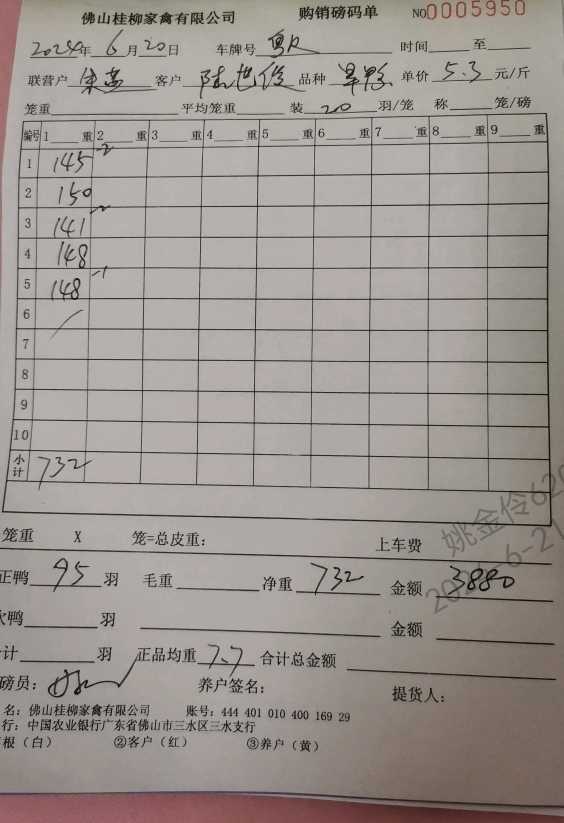 佛山桂柳家禽有限公司 购销磅码单 NO0005950
2024年6月20日 车牌号 粤R 时间 至
联营户 客户 陆世俊 品种 旱鸭 单价 5.3 元/斤
笼重 平均笼重 装 20 羽/笼 称 笼/磅
编号 1 重 2 重 3 重 4 重 5 重 6 重 7 重 8 重 9 重
1 145 -2
2 150
3 141 -2
4 148
5 148 -1
6
7
8
9
10
小计 732
笼重 X 笼=总皮重: 上车费
正鸭 95 羽 毛重 净重 732 金额 3880
次鸭 羽 金额
计 羽 正品均重 7.7 合计总金额
磅员: 养户签名: 提货人:
名: 佛山桂柳家禽有限公司 账号: 444 401 010 400 169 29
行: 中国农业银行广东省佛山市三水区三水支行
根(白) ②客户(红) ③养户(黄)
姚金伶620
6-21